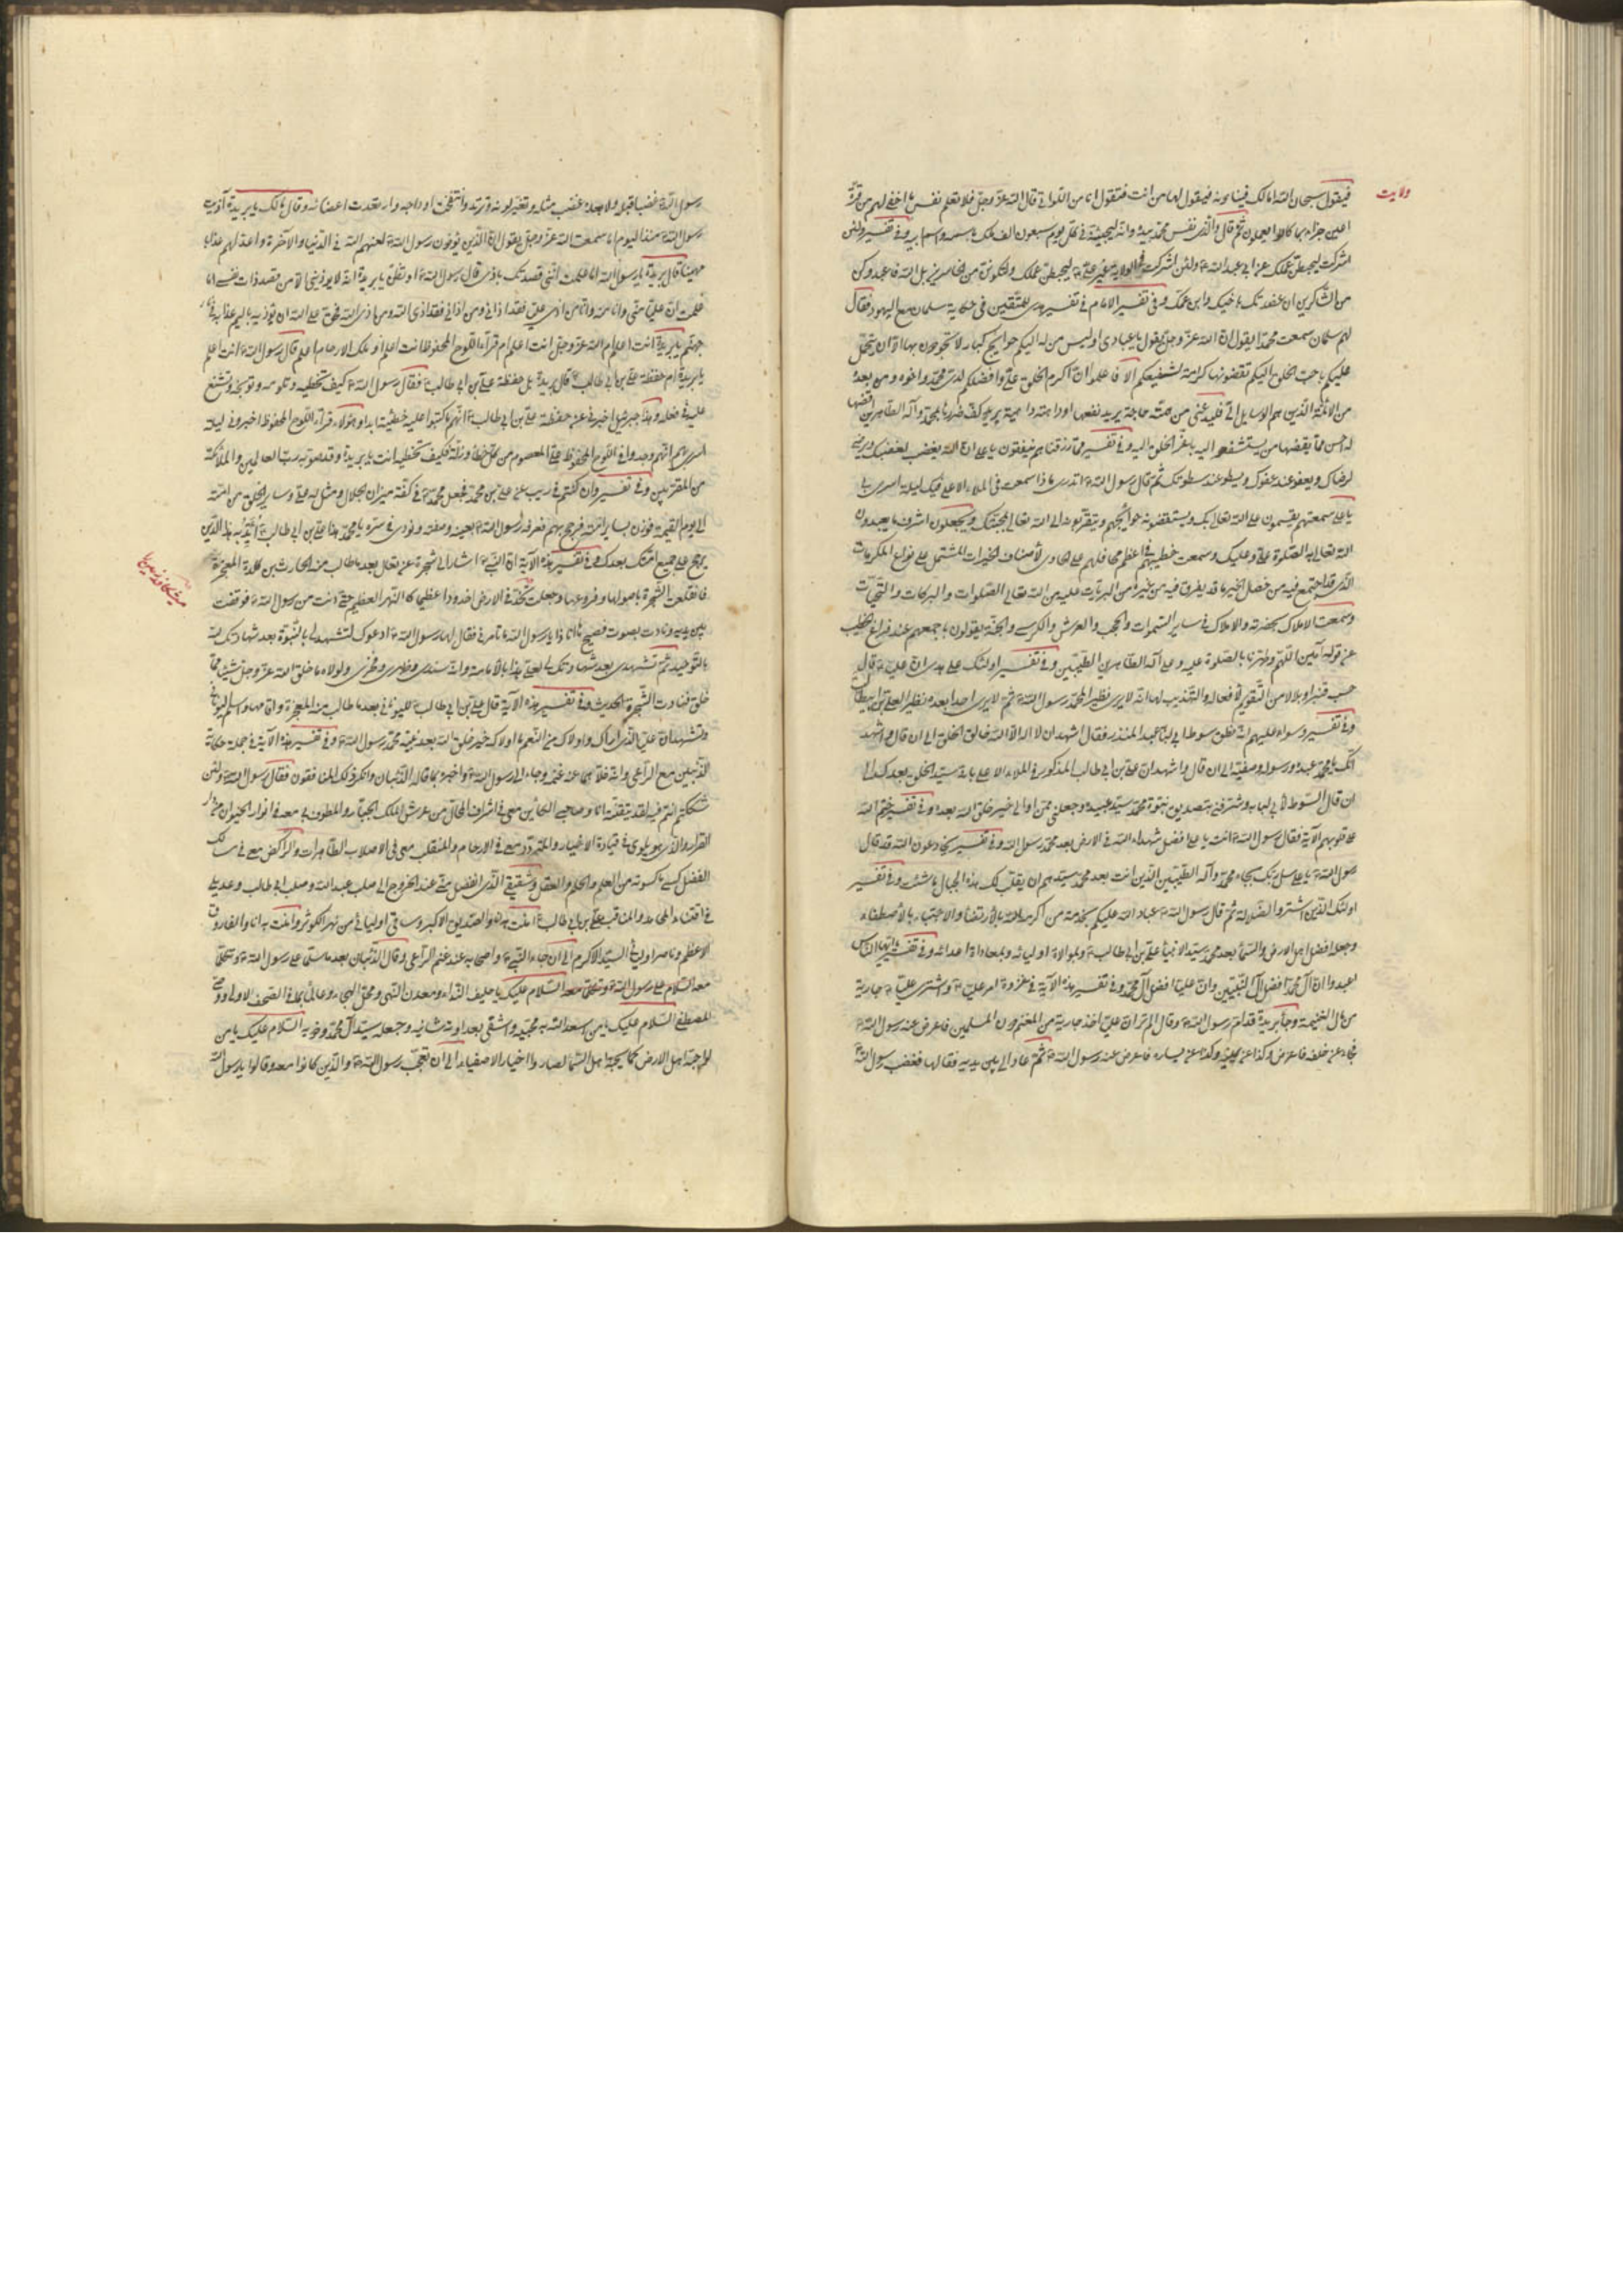 ولايت
فيقول سبحان الله امالك فينا نوبه فيقول لها من انت فتقول انا من اللواتى قال الله عز وجل فلا تعلم نفس ما اخفى لهم من قرة
اعين جزاء بما كانوا يعملون ثم قال والذى نفس محمد بيده وانه ليجيئه فى كل يوم سبعون الف ملك باسمه واسم ابيه وفى تفسير ولئن
اشركت ليحبطن عملك عن ابى عبد الله ولئن اشركت فى الولاية غير على ليحبطن عملك ولتكونن من الخاسرين بل الله فاعبد وكن
من الشاكرين ان عضدتك باخيك وابن عمك وفى تفسير الامام فى تفسير هدى للمتقين فى حكاية سلمان مع اليهود فقال
لهم سلمان سمعت محمدا يقول ان الله عز وجل يقول يا عبادى اوليس من له اليكم حوايج كبار لا تجودون بها الا ان يتحمل
عليكم باحب الخلق اليكم تقضونها كرامة لشفيعكم الا فاعلموا ان اكرم الخلق على وافضلهم لدى محمد واخوه على ومن بعده
من الائمة الذين هم الوسايل الى فليدعنى من همته حاجة يريد نفعها او دهته داهية يريد كف ضررها بمحمد وآله الطاهرين اقضها
له احسن مما يقضيها من يستشفعو اليه باعز الخلق اليه وفى تفسير مما رزقناهم ينفقون يا على ان الله يغضب لغضبك ويرضى
لرضاك ويعفو عند عفوك ويسطو عند سطوتك ثم قال رسول الله اتدرى ماذا سمعت فى الملاء الاعلى فيك ليلة اسرى بى
يا على سمعتهم يقسمون على الله تعالى بك ويستقضونه حوايجهم ويتقربون الى الله تعالى بمحبتك ويجعلون اشرف ما يعبدون
الله تعالى به الصلوة على وعليك وسمعت خطيبهم فى اعظم محافلهم على الحاوى لاصناف الخيرات المشتمل على انواع المكرمات
الذى قد اجتمع فيه من خصال الخير ما قد تفرق فى غيره من البريات عليه من الله تعالى الصلوات والبركات والتحيات
وسمعت الاملاك بحضرته والاملاك فى ساير السموات والحجب والعرش والكرسى والجنة يقولون باجمعهم عند فراغ الخطيب
عن قوله آمين اللهم وطهرنا بالصلوة عليه وعلى آله الطاهرين الطيبين وفى تفسير اولئك على هدى
وفى تفسير وسواء عليهم انه نطق سوط ابى لبابة عبد المنذر فقال اشهد ان لا اله الا الله خالق الخلق الى ان قال واشهد
انك يا محمد عبده ورسوله وصفيه الى ان قال واشهد ان على بن ابى طالب المذكور فى الملاء الاعلى بانه سيد الخلق بعدك الى
ان قال السوط لابى لبابه وشرفنى بتصديق نبوة محمد سيد عبيده وجعلنى ممن اوالى خير خلق الله بعده وفى تفسير ختم الله
على قلوبهم الآية فقال رسول الله انت يا على افضل شهداء الله فى الارض بعد محمد رسول الله وفى تفسير يخادعون الله قد قال
رسول الله يا على سل ربك بجاه محمد وآله الطيبين الذين انت بعد محمد سيدهم ان يقلب لك هذه الجبال ما شئت وفى تفسير
اولئك الذين اشتروا الضلالة ثم قال رسول الله عباد الله عليكم بخدمة من اكرمه الله بالارتضاء والاجتباء بالاصطفاء
وجعله افضل اهل الارض والسماء بعد محمد سيد الانبياء على بن ابى طالب وبموالاة اوليائه وبمعاداة اعدائه وفى تفسير يا ايها الناس
اعبدوا ان آل محمد افضل آل النبيين وان عليا افضل آل محمد وفى تفسير هذه الآية فى غزوة امر على واشترى على جارية
من مال الغنيمة وجاء بريدة قدام رسول الله وقال الم تر ان على اخذ جارية من المغنم دون المسلمين فاعرض عنه رسول الله
فجاء عن خلفه فاعرض وكذا عن يمينه وكذا عن يساره فاعرض عنه رسول الله ثم عاد الى بين يديه فقالها فغضب رسول الله
رسول الله غضبا قبل ولا بعد غضب مثله وتغير لونه وتربد وانتفخت اوداجه وارتعدت اعضائه وقال مالك يا بريدة آذيت
رسول الله منذ اليوم اما سمعت الله عز وجل يقول ان الذين يؤذون رسول الله لعنهم الله فى الدنيا والآخرة واعد لهم عذابا
مهينا قال بريدة يا رسول الله ما علمت اننى قصدتك باذى قال رسول الله او تظن يا بريدة انه لا يؤذينى الا من قصد ذات نفسى اما
علمت ان عليا منى وانا منه وان من آذى على فقد اذانى ومن اذانى فقد اذى الله ومن اذى الله فحق على الله ان يؤذيه باليم عذابه فى نار
جهنم يا بريدة انت اعلم ام الله عز وجل انت اعلم ام قراء اللوح المحفوظ انت اعلم او ملك الارحام اعلم قال رسول الله انت اعلم
يا بريدة ام حفظة على بن ابى طالب قال بريدة بل حفظة على بن ابى طالب فقال رسول الله كيف تخطيه وتلومه وتوبخه وتشنع
عليه فى فعله وهذا جبرئيل اخبرنى عن حفظة على بن ابى طالب انهم ما كتبوا عليه خطيئة ابدا وهؤلاء قراء اللوح المحفوظ اخبرونى ليلة
اسرى بهم انهم وجدوا فى اللوح المحفوظ على المعصوم من كل خطاء وزلة فكيف تخطيه انت يا بريدة وقد صوبه رب العالمين والملائكة
من المقربين وفى تفسير وان كنتم فى ريب عن على بن محمد فجعل محمد فى كفة ميزان الجلال ومثل له على وساير الخلق من امته
الى يوم القيمة فوزن بساير امته فرجح بهم فعرفه رسول الله بعينه وصفته ونودى فى سره يا محمد هذا على بن ابى طالب الذى
يرجح على جميع امتك بعدك وفى تفسير هذه الآية ان النبى اشار الى شجرة عن تعال بعد ما طالب منه الحارث بن كلدة المعجزة
فانقلعت الشجرة باصولها وفروعها وجعلت تخد فى الارض اخدودا عظيما كالنهر العظيم حتى دنت من رسول الله فوقفت
بين يديه ونادت بصوت فصيح ها انا ذا يا رسول الله ما تامرنى فقال لها رسول الله ادعوك لتشهد لى بالنبوة بعد شهادتك لله
بالتوحيد ثم تشهدى بعد شهادتك لى لعلى هذا بالامامة وانه سندى وظهرى وفخرى ولولاه ما خلق الله عز وجل شيئا مما
خلق فنادت الشجرة الحديث وفى تفسير هذه الآية قال على بن ابى طالب لليونانى بعد ما طالب منه المعجزة واقامها واسلم اليونانى
وتشهد ان عليا الذى اراك واولاك من النعم ما اولاك خير خلق الله بعد نبيه محمد رسول الله وفى تفسير هذه الآية فى جملة حكاية
الذئبين مع الراعى
شككتم انتم فيه لقد تيقنته انا وصاحبى الكاين معى فى اشرف المحال من عرش الملك الجبار والمطوف به معه فى انهار الحيوان من دار
القرار والذى هو يلوى فى قيادة الاخيار والمتردد معى فى الارحام والمنقلب معى فى الاصلاب الطاهرات والراكض معى فى مسالك
الفضل كسى ما كسوته من العلم والحلم والعقل وشقيقى الذى انفصل منى عند الخروج الى صلب عبد الله وصلب ابى طالب وعديلى
فى اقتناء المحامد والمناقب على بن ابى طالب امنت به انا والصديق الاكبر وساقى اوليائى من نهر الكوثر وامنت به انا والفاروق
الاعظم وناصر اوليائى السيد الاكرم الى ان جاء النبى واصحابه عند غنم الراعى وقال الذئبان بعد ما سلما على رسول الله
السلام عليك يا حليف النداء ومعدن النهى ومحل الحجى وعالما بما فى الصحف الاولى ووصى
المصطفى السلام عليك يا من اسعد الله به محبيه واشقى بعداوته شانيه وجعله سيد آل محمد وذويه السلام عليك يا من
لو احبه اهل الارض كما يحبه اهل السماء لصاروا اخيار الاصفياء الى ان تعجب رسول الله والذين كانوا معه وقالوا يا رسول الله